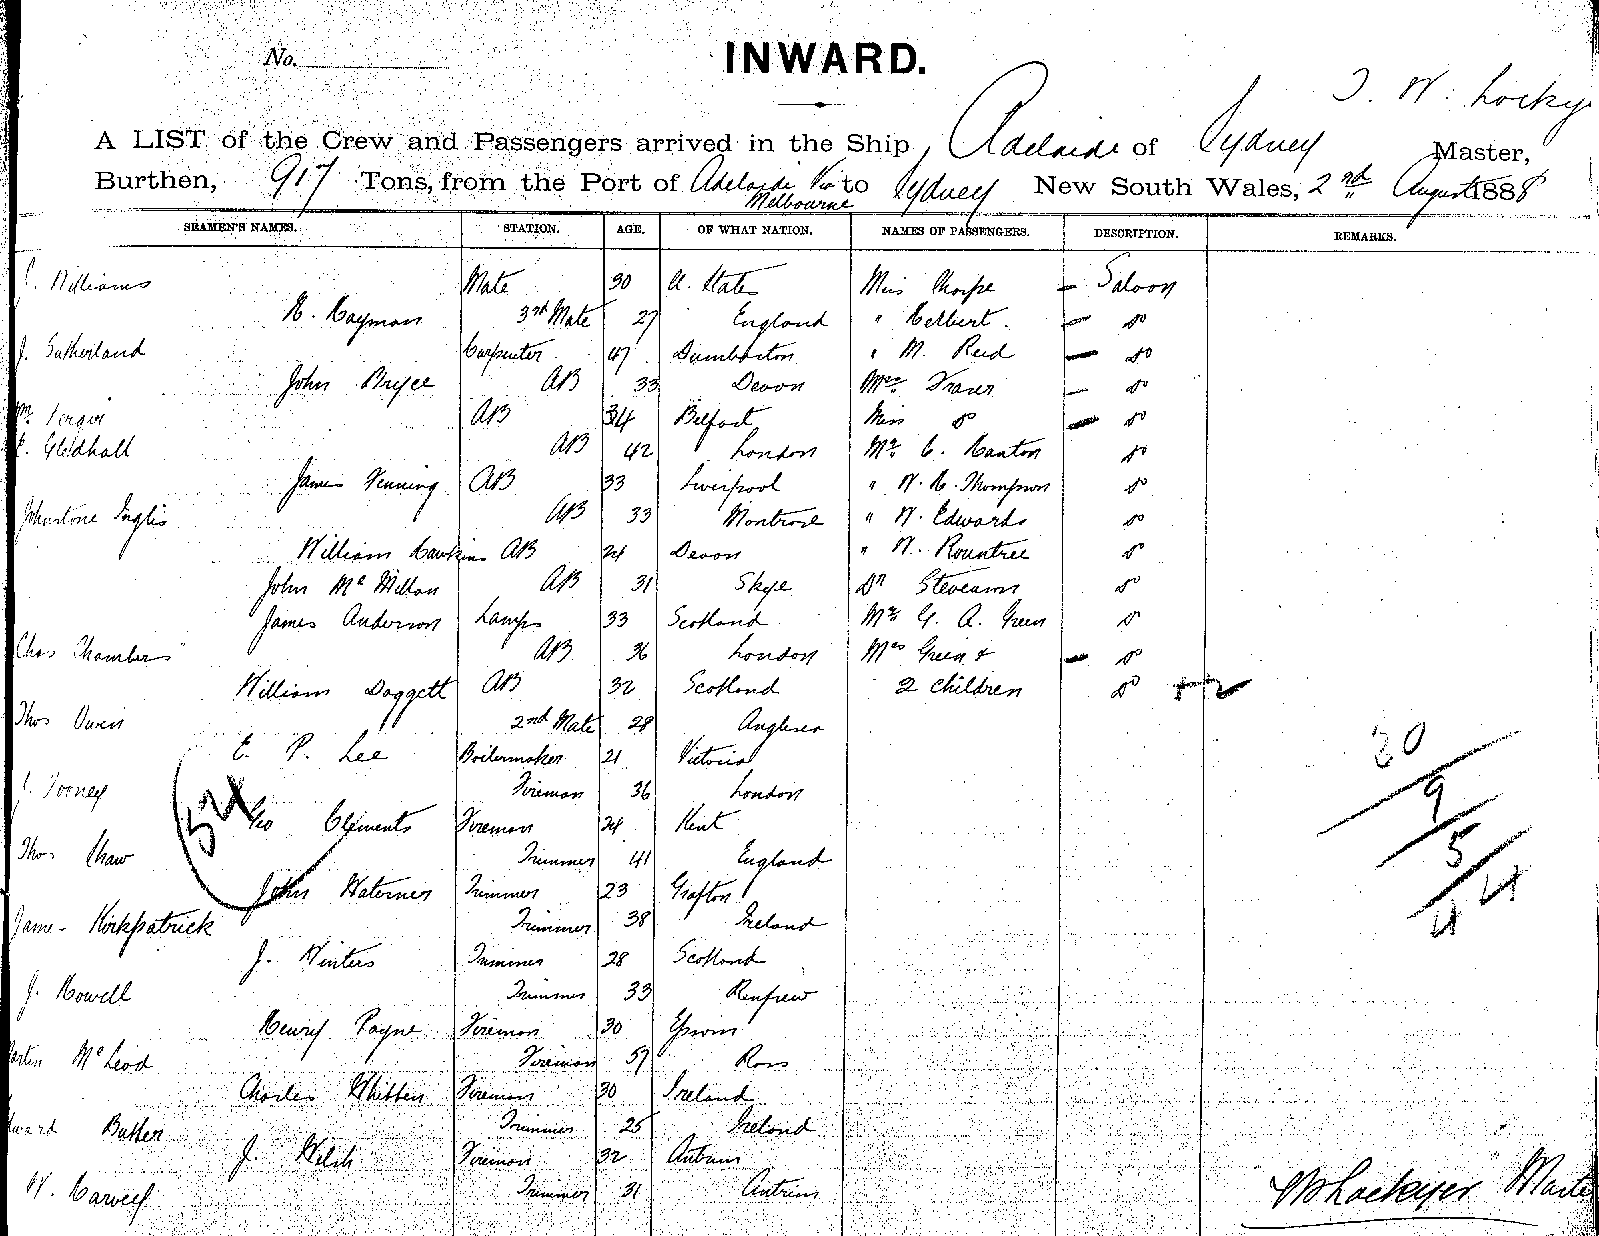 No.
INWARD.
A LIST of the Crew and Passengers arrived in the Ship, Adelaide of Sydney T. W. Lockye Master,
Burthen, 917 Tons, from the Port of Adelaide Via Melbourne to Sydney New South Wales, 2nd August 1888
SEAMEN'S NAMES. STATION. AGE. OF WHAT NATION. NAMES OF PASSENGERS. DESCRIPTION. REMARKS.
J. Williams Mate 30 U. States Miss Thorpe — Saloon
H. Hayman 3rd Mate 27 England " Helbert — do
J. Sutherland Carpenter 47 Dumbarton " M. Reid — do
John Bryce AB 33 Devon Mrs Fraser — do
AB 34 Belfast Miss do — do
Gledhall AB 42 London Mr C. Hanton do
James Venning AB 33 Liverpool " W. H. Thompson do
Johnstone Inglis AB 33 Montrose " W. Edwards do
William Hawkins AB 24 Devon " W. Rountree do
John McMillan AB 31 Skye Dr do
James Anderson Lamps 33 Scotland Mr G. A. Green do
Chas Chambers AB 36 London Mrs Green & — do
William Doggett AB 32 Scotland 2 children do
Thos Owen 2nd Mate 28 Anglesea
E. P. Lee Boilermaker 21 Victoria
J. Tooney Fireman 36 London
Geo Clements Fireman 24 Kent
Thos Shaw Trimmer 41 England
John Trimmer 23 Grafton
James Kirkpatrick Trimmer 38 Ireland
J. Winters Trimmer 28 Scotland
J. Howell Trimmer 33 Renfrew
Henry Payne Fireman 30 Epsom
McLeod Fireman 57 Ross
Charles Whitten Fireman 30 Ireland
Butler Trimmer 25 Ireland
J. Welsh Fireman 32 Antrim
W. Harvey Trimmer 31 Antrim
20
9
5
4
4
Lockyer Maste